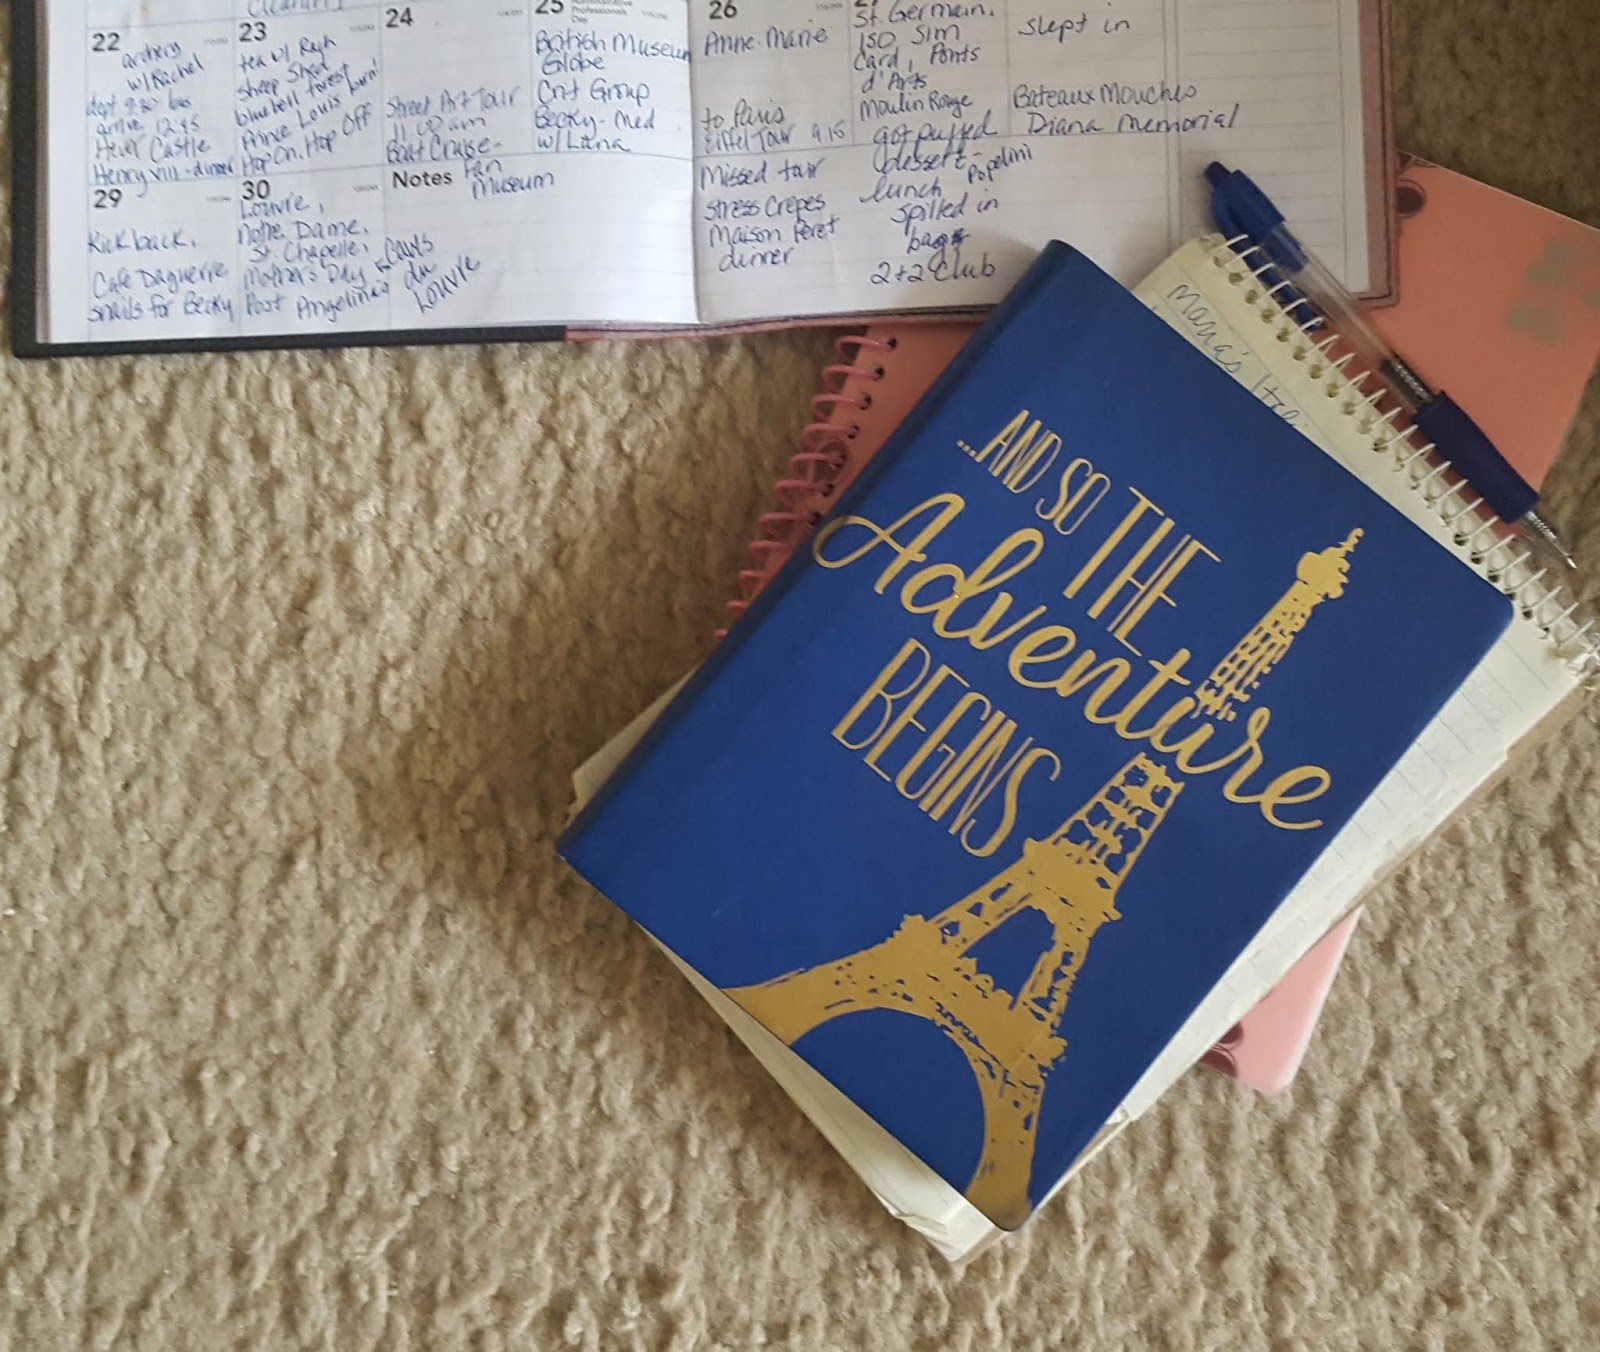 Cleaning
22
archery
w/ Rachel
dept 9:30 bus
arrive 12:45
Hever Castle
Henry VIII - dinner
23
tea w/ Raph
Sheep Shed
bluebell forest
Prince Louis born!
Hop On, Hop Off
24
Street Art Tour
11:00 am
Boat Cruise -
Fan
Museum
25
Administrative
Professionals
Day
British Museum
Globe
Cnt Group
Becky - Med
w/ Liana
26
Anne-Marie
to Paris
Eiffel Tour 9:15
Missed tour
Stress Crepes
Maison Peret
dinner
St. Germain,
ISO Sim
Card, Ponts
d'Arts
Moulin Rouge
got puffed
dessert - Popelini
lunch
spilled in
bags
2+2 Club
slept in
Bateaux Mouches
Diana Memorial
29
Kick back.
Cafe Daguerre
snails for Becky
30
Louvre,
Notre Dame,
St. Chapelle,
Mothers Day
Post Angelina's
du
Louvre
Notes
Mana's
...AND SO THE
Adventure
BEGINS